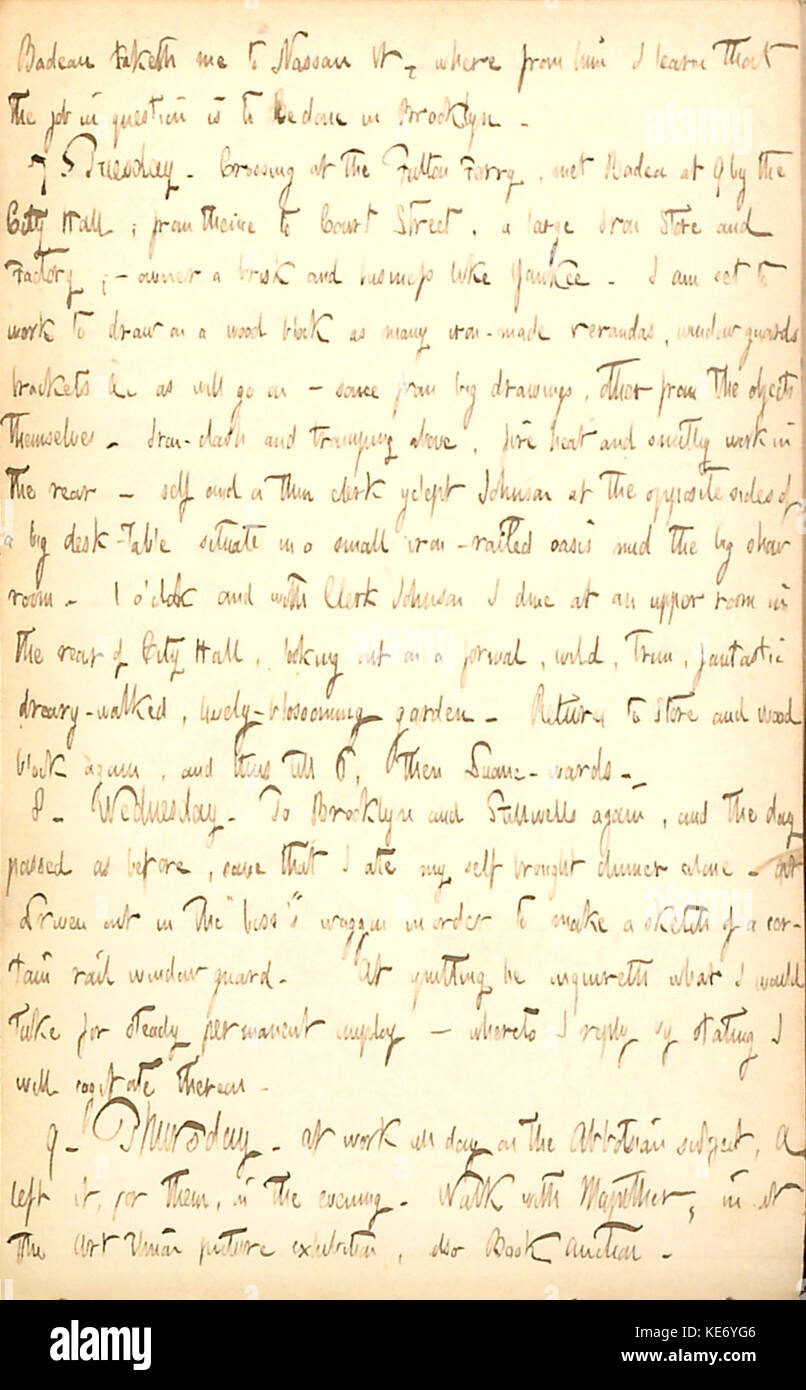 Badeau taketh me to Nassau St, where from him I learn that
the job in question is to be done in Brooklyn.
7 Tuesday. Crossing at the Fulton Ferry, met Badeau at 9 by the
City Hall; from thence to Court Street, a large Iron Store and
Factory; - owner a brisk and business like Yankee. I am set to
work to draw on a wood block as many iron-made verandas, window guards
brackets &c as will go on - some from big drawings, other from the objects
themselves. Iron-clash and tramping above, fire heat and smithy work in
the rear - self and a thin clerk yclept Johnson at the opposite sides of
a big desk-table situate in a small iron-railed oasis mid the big show
room. 1 o'clock and with Clerk Johnson I dine at an upper room in
the rear of City Hall, looking out on a formal, wild, trim, fantastic
dreary-walked, lively-blossoming garden. Return to store and wood
block again, and thus till 6, then Duane-wards.
8. Wednesday. To Brooklyn and Stillwells again, and the day
passed as before, save that I ate my self brought dinner alone.
driven out in the "boss's" waggon in order to make a sketch of a cer-
tain rail window guard. At quitting he inquireth what I would
take for steady permanent employ - whereto I reply by stating I
will cogitate thereon.
9. Thursday. At work all day on the Abbotian subject, &
left it, for them, in the evening. Walk with Mapother, in at
the Art Union picture exhibition, also Book Auction.
alamy
alamy
Image ID: KE6YG6
www.alamy.com